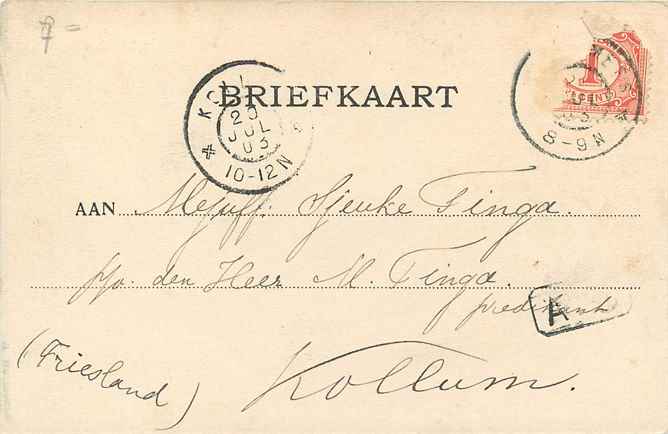 7 =
BRIEFKAART
KOLL
20
JUL
03
10-12N
1
CENT
8-9N
AAN Mejuff. Sjeuke Tinga.
p/a. den Heer M. Tinga.
predikant
K
(Friesland)
Kollum.